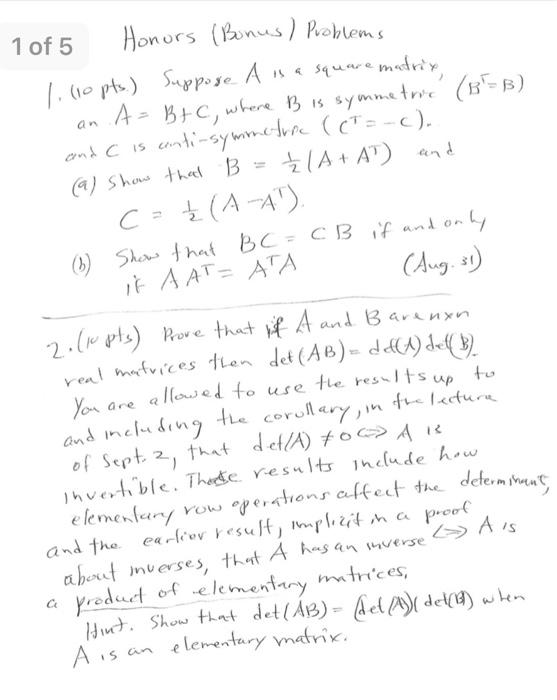 1 of 5
Honors (Bonus) Problems
1. (10 pts.) Suppose A is a square matrix,
an A = B+C, where B is symmetric (Bᵀ=B)
and C is anti-symmetric (Cᵀ = -C).
(a) Show that B = ½(A + Aᵀ) and
C = ½(A - Aᵀ).
(b) Show that BC = CB if and only
if AAᵀ = AᵀA (Aug. 31)
2. (10 pts) Prove that if A and B are nxn
real matrices then det(AB) = det(A) det(B).
You are allowed to use the results up to
and including the corollary, in the lecture
of Sept. 2, that det(A) ≠ 0 <=> A is
invertible. These results include how
elementary row operations affect the determinant,
and the earlier result, implicit in a proof
about inverses, that A has an inverse <=> A is
a product of elementary matrices.
Hint. Show that det(AB) = (det(A))(det(B)) when
A is an elementary matrix.